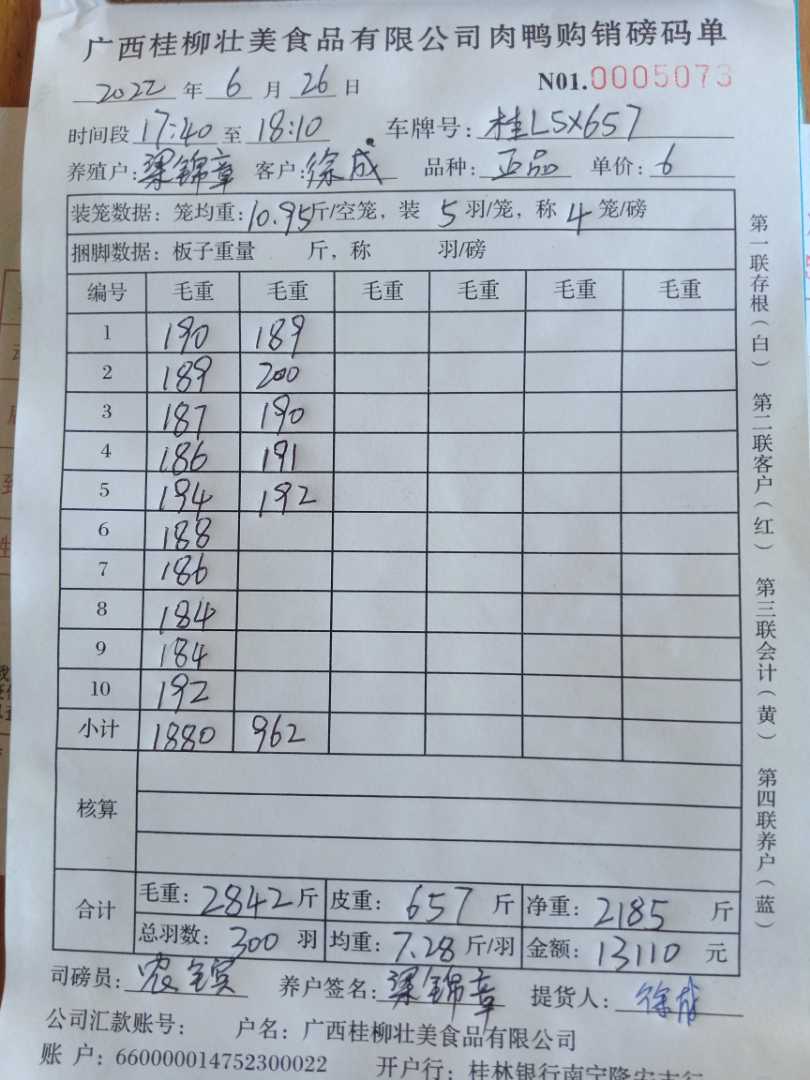 广西桂柳壮美食品有限公司肉鸭购销磅码单
2022 年 6 月 26 日 N01.0005073
时间段 17:40 至 18:10 车牌号: 桂L5X657
养殖户: 梁锦章 客户: 徐成 品种: 正品 单价: 6
装笼数据: 笼均重: 10.95斤/空笼, 装 5 羽/笼, 称 4 笼/磅
捆脚数据: 板子重量 斤, 称 羽/磅
编号 毛重 毛重 毛重 毛重 毛重 毛重
1 190 189
2 189 200
3 187 190
4 186 191
5 194 192
6 188
7 186
8 184
9 184
10 192
小计 1880 962
核算
合计 毛重: 2842斤 皮重: 657 斤 净重: 2185 斤
总羽数: 300 羽 均重: 7.28斤/羽 金额: 13110 元
司磅员: 养户签名: 梁锦章 提货人: 徐成
公司汇款账号: 户名: 广西桂柳壮美食品有限公司
账 户: 660000014752300022 开户行: 桂林银行南宁隆安支行
第一联存根(白) 第二联客户(红) 第三联会计(黄) 第四联养户(蓝)